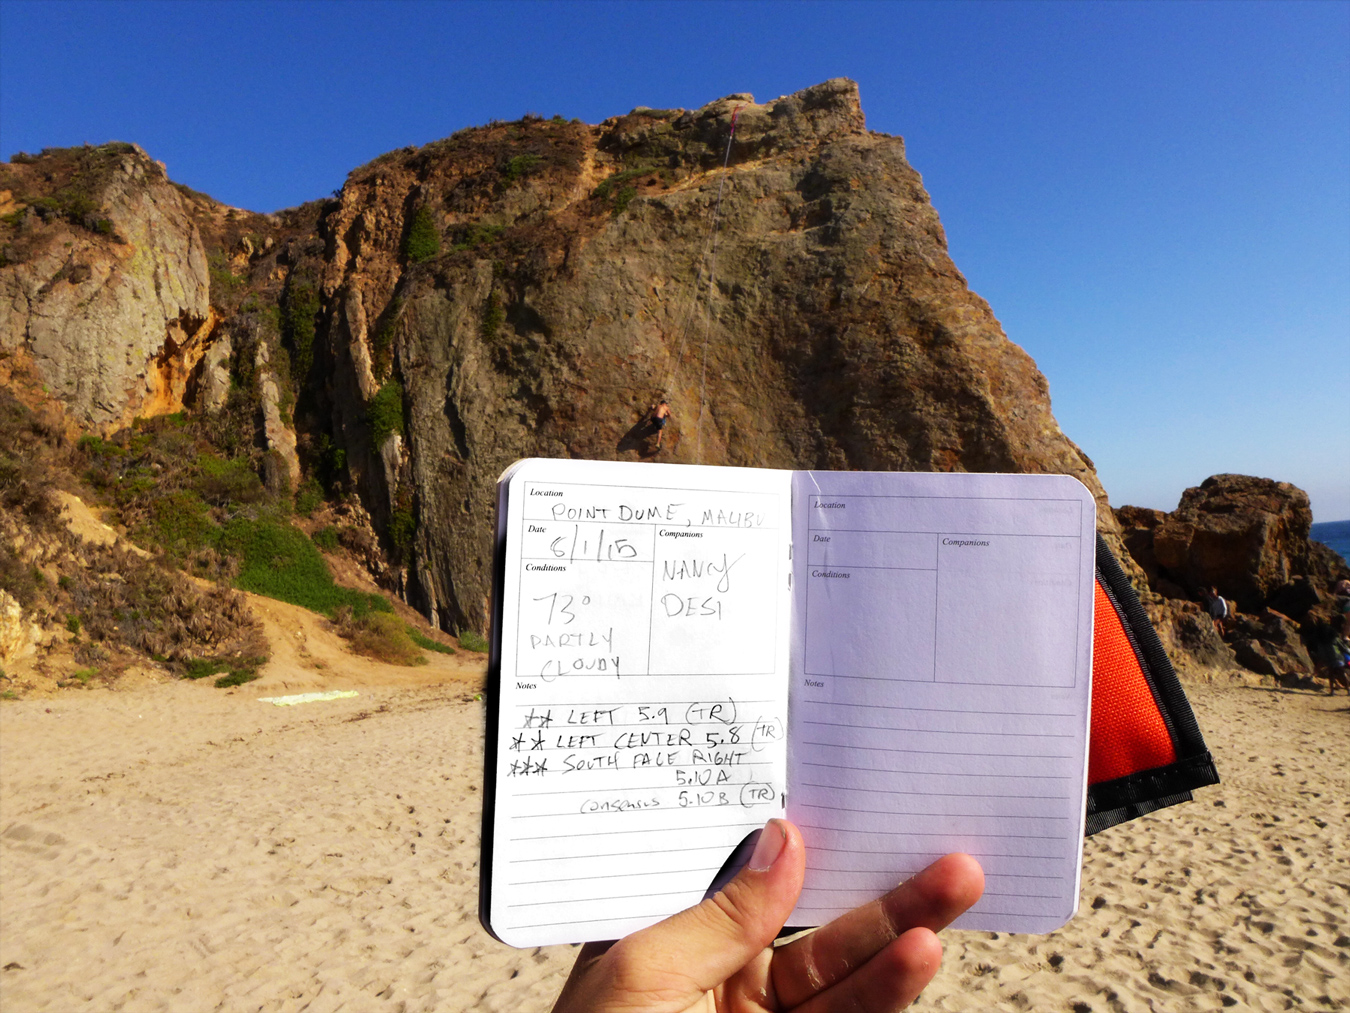 Location
POINT DUME, MALIBU
Date
6/1/15
Companions
NANCY
DESI
Conditions
73°
PARTLY
CLOUDY
Notes
** LEFT 5.9 (TR)
** LEFT CENTER 5.8 (TR)
*** SOUTH FACE RIGHT
5.10A
consensus 5.10B (TR)
Location
Date
Companions
Conditions
Notes